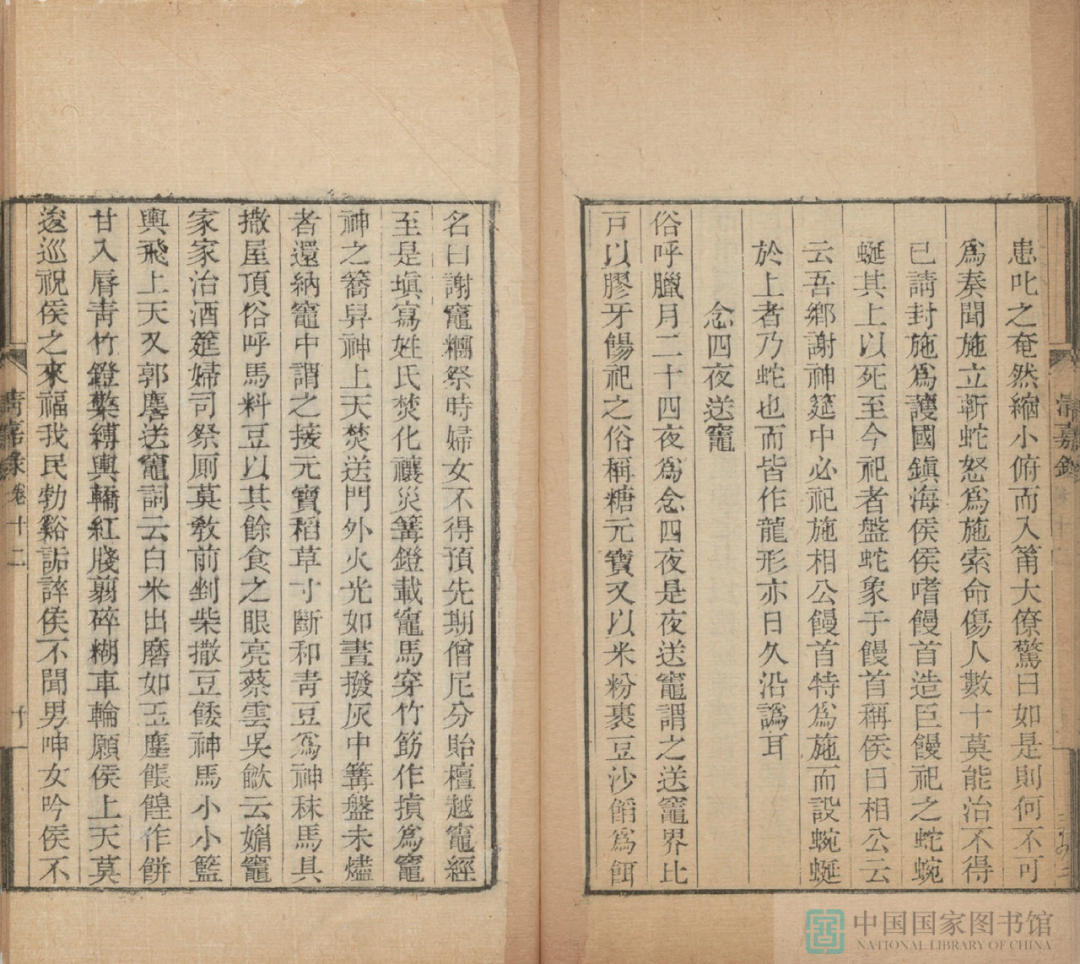 患叱之奄然縮小俯而入筩大僚驚曰如是則何不可
爲奏聞施立斬蛇怒爲施索命傷人數十莫能治不得
已請封施爲護國鎮海侯侯嗜饅首造巨饅祀之蛇蜿
蜒其上以死至今祀者盤蛇象于饅首稱侯曰相公云
云吾鄉謝神筵中必祀施相公饅首特爲施而設蜿蜒
於上者乃蛇也而皆作龍形亦日久沿譌耳
念四夜送竈
俗呼臘月二十四夜爲念四夜是夜送竈謂之送竈界比
戸以膠牙餳祀之俗稱糖元寶又以米粉裹豆沙餡爲餌
清嘉錄
名曰謝竈糰祭時婦女不得預先期僧尼分貽檀越竈經
至是塡寫姓氏焚化禳災篝鐙載竈馬穿竹筯作摃爲竈
神之簥舁神上天焚送門外火光如晝撥灰中篝盤未燼
者還納竈中謂之接元寶稻草寸斷和青豆爲神秣馬具
撒屋頂俗呼馬料豆以其餘食之眼亮蔡雲吳歈云媚竈
家家治酒筵婦司祭厠莫敎前剉柴撒豆餧神馬小小籃
輿飛上天又郭麐送竈詞云白米出磨如玉塵餦餭作餠
甘入脣靑竹鐙檠縛輿轎紅牋翦碎糊車輪願侯上天莫
逡巡祝侯之來福我民勃谿詬誶侯不聞男呻女吟侯不
清嘉錄 卷十二
中国国家图书馆
NATIONAL LIBRARY OF CHINA